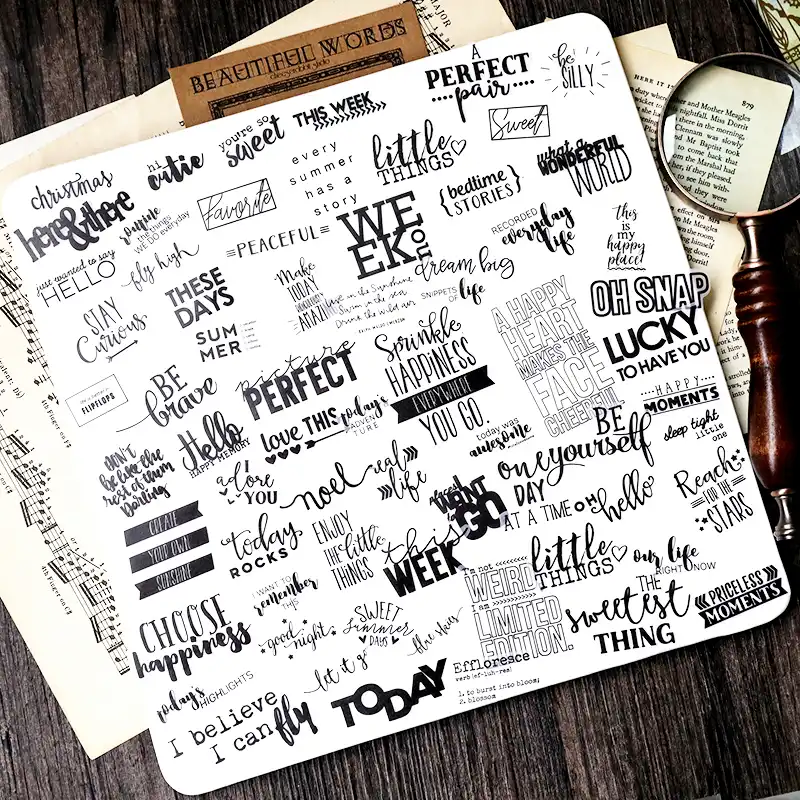 BEAUTIFUL WORDS
MAJOR
A
PERFECT
pair
be
SILLY
THIS WEEK
you're so
sweet
hi
cutie
christmas
every
summer
has a
story
little
THINGS
Sweet
what a
WONDERFUL
WORLD
HERE IT
879
and Mother Meagles
nightfall, Miss Dorrit
there in the morning,
Clennam was slowly
come back that
the Marshal had
here&there
routine
WE DO everyday
Favorite
{bedtime
STORIES}
PEACEFUL
WE
EK
YOU
RECORDED
everyday
life
this
is my
happy
place!
just wanted to say
HELLO
fly high
dream big
Make
TODAY
AMAZING
Live in the Sunshine
Swim in the sea
Drink the wild air
SNIPPETS
OF life
THESE
DAYS
STAY
Curious
SUM
MER
A HAPPY
HEART
MAKES THE
FACE
CHEERFUL
OH SNAP
LUCKY
TO HAVE YOU
FLIPFLOPS
BE
brave
picture
PERFECT
Sprinkle
HAPPINESS
EVERYWHERE
YOU GO.
HAPPY
MOMENTS
sleep tight
little
one
love THIS
today's
ADVEN
TURE
Hello
HAPPY MEMORY
ain't
be like the
rest of them
Darling
today was
awesome
BE
yourself
adore
YOU
noel
real
life
WANT
GO
one
DAY
AT A TIME
OH
hello
Reach
FOR THE
STARS
CREATE
YOUR OWN
SUNSHINE
today
ROCKS
ENJOY
the little
THINGS
this
WEEK
I'm not
WEIRD
I am
LIMITED
EDITION.
little
THINGS
our life
RIGHT NOW
I WANT TO
remember
THIS
THE
sweetest
THING
PRICELESS
MOMENTS
CHOOSE
happiness
good
night
SWEET
Summer
DAYS
let it go
blue skies
today's
HIGHLIGHTS
I believe
I can fly
TODAY
Effloresce
verb (ef-luh-res)
1. to burst into bloom;
2. blossom